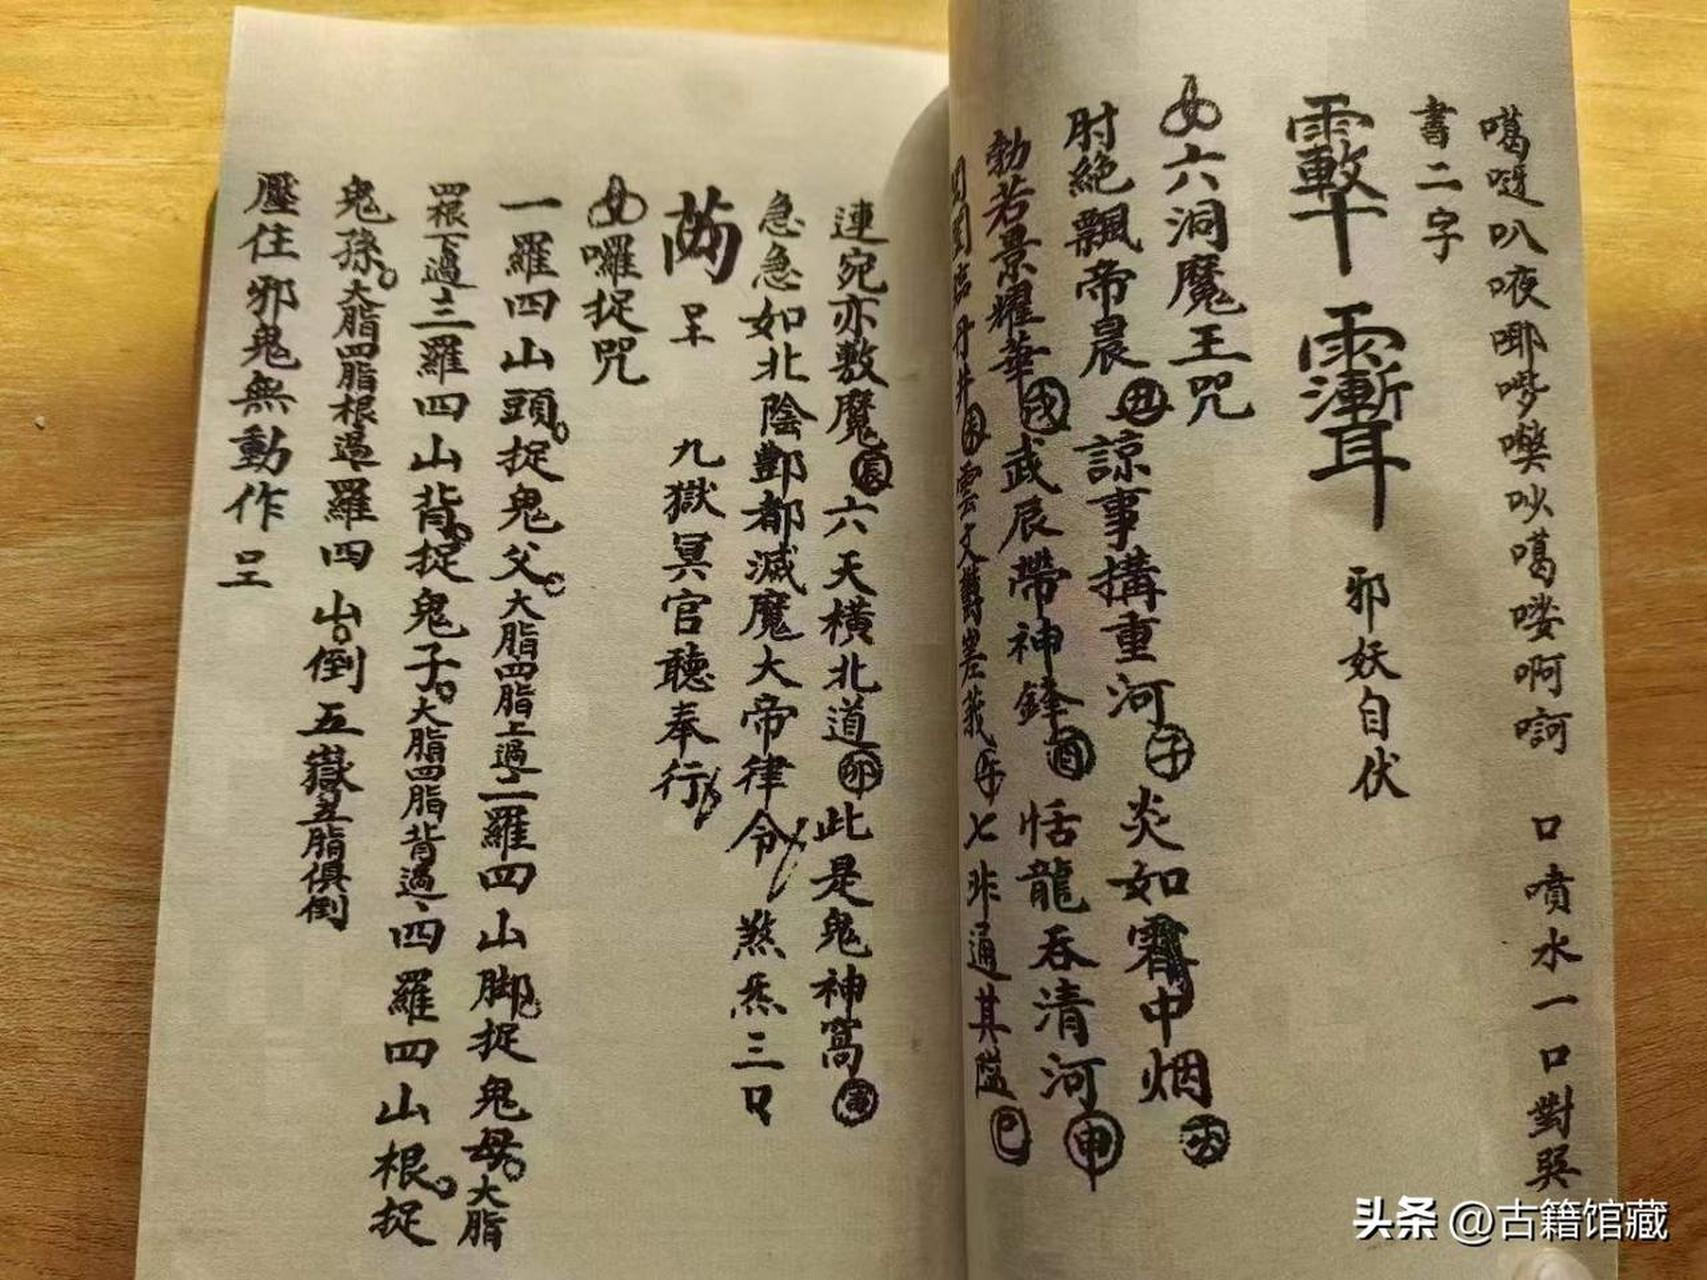 噶呀叭唊啷嘭噗吙噶喽啊啊 口噴水一口對吳
書二字
邪妖自伏
六洞魔王咒
肘絕飄帝晨 丑 諒事構重河 子 炎如霄中烟
勃若景耀華 戌 武辰帶神鋒 酉 恬龍吞清河 申
丹井 雲文 午 七非通其陰 巳
連宛亦敷魔 辰 六天橫北道 卯 此是鬼神窩 寅
急急如北陰酆都滅魔大帝律令 煞炁三口
罡 九獄冥官聽奉行
囉捉咒
一羅四山頭捉鬼父大脂四脂上過二羅四山脚捉鬼母大脂
四根下過三羅四山背捉鬼子大脂四脂背過四羅四山根捉
鬼孫大脂四脂根過羅四山倒五嶽五脂俱倒
壓住邪鬼無動作罡
头条 @古籍馆藏